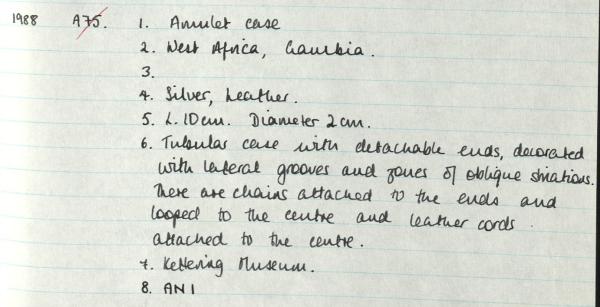 1988 A75. 1. Amulet case
2. West Africa, Gambia.
3.
4. Silver, Leather.
5. L. 10cm. Diameter 2cm.
6. Tubular case with detachable ends, decorated
with lateral grooves and zones of oblique striations.
There are chains attached to the ends and
looped to the centre and leather cords
attached to the centre.
7. Kettering Museum.
8. AN1